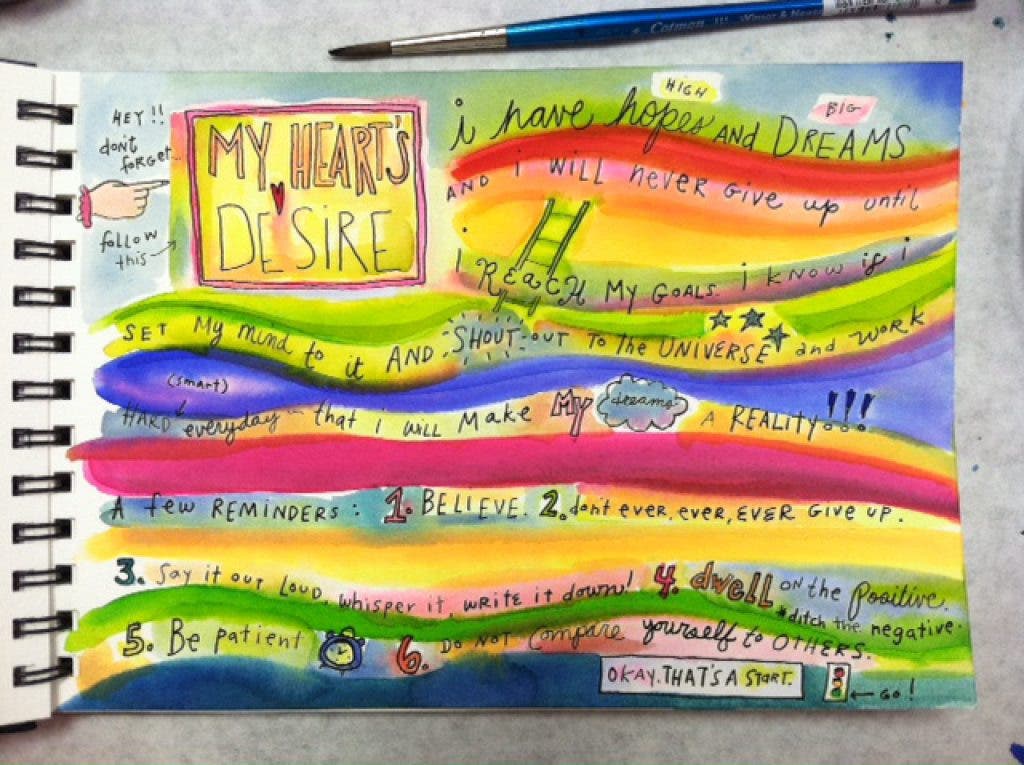 Cotman 111 Winsor & Newton
HEY!!
don't
forget...
follow
this
MY HEART'S
DESIRE
HIGH
BIG
i have hopes AND DREAMS
AND i WILL never Give up until
i REACH MY GOALS. i KNOW if i
SET My mind to it AND SHOUT-OUT To the UNIVERSE and work
(smart)
HARD everyday - that i will Make My dreams A REALITY!!!
A few REMINDERS: 1. BELIEVE. 2. don't ever, ever, EVER Give up.
3. Say it out LOUD, whisper it, write it down! 4. dwell ON the Positive.
*ditch the negative.
5. Be patient 6. Do NOT Compare yourself to OTHERS.
OKAY. THAT'S A START.
GO!